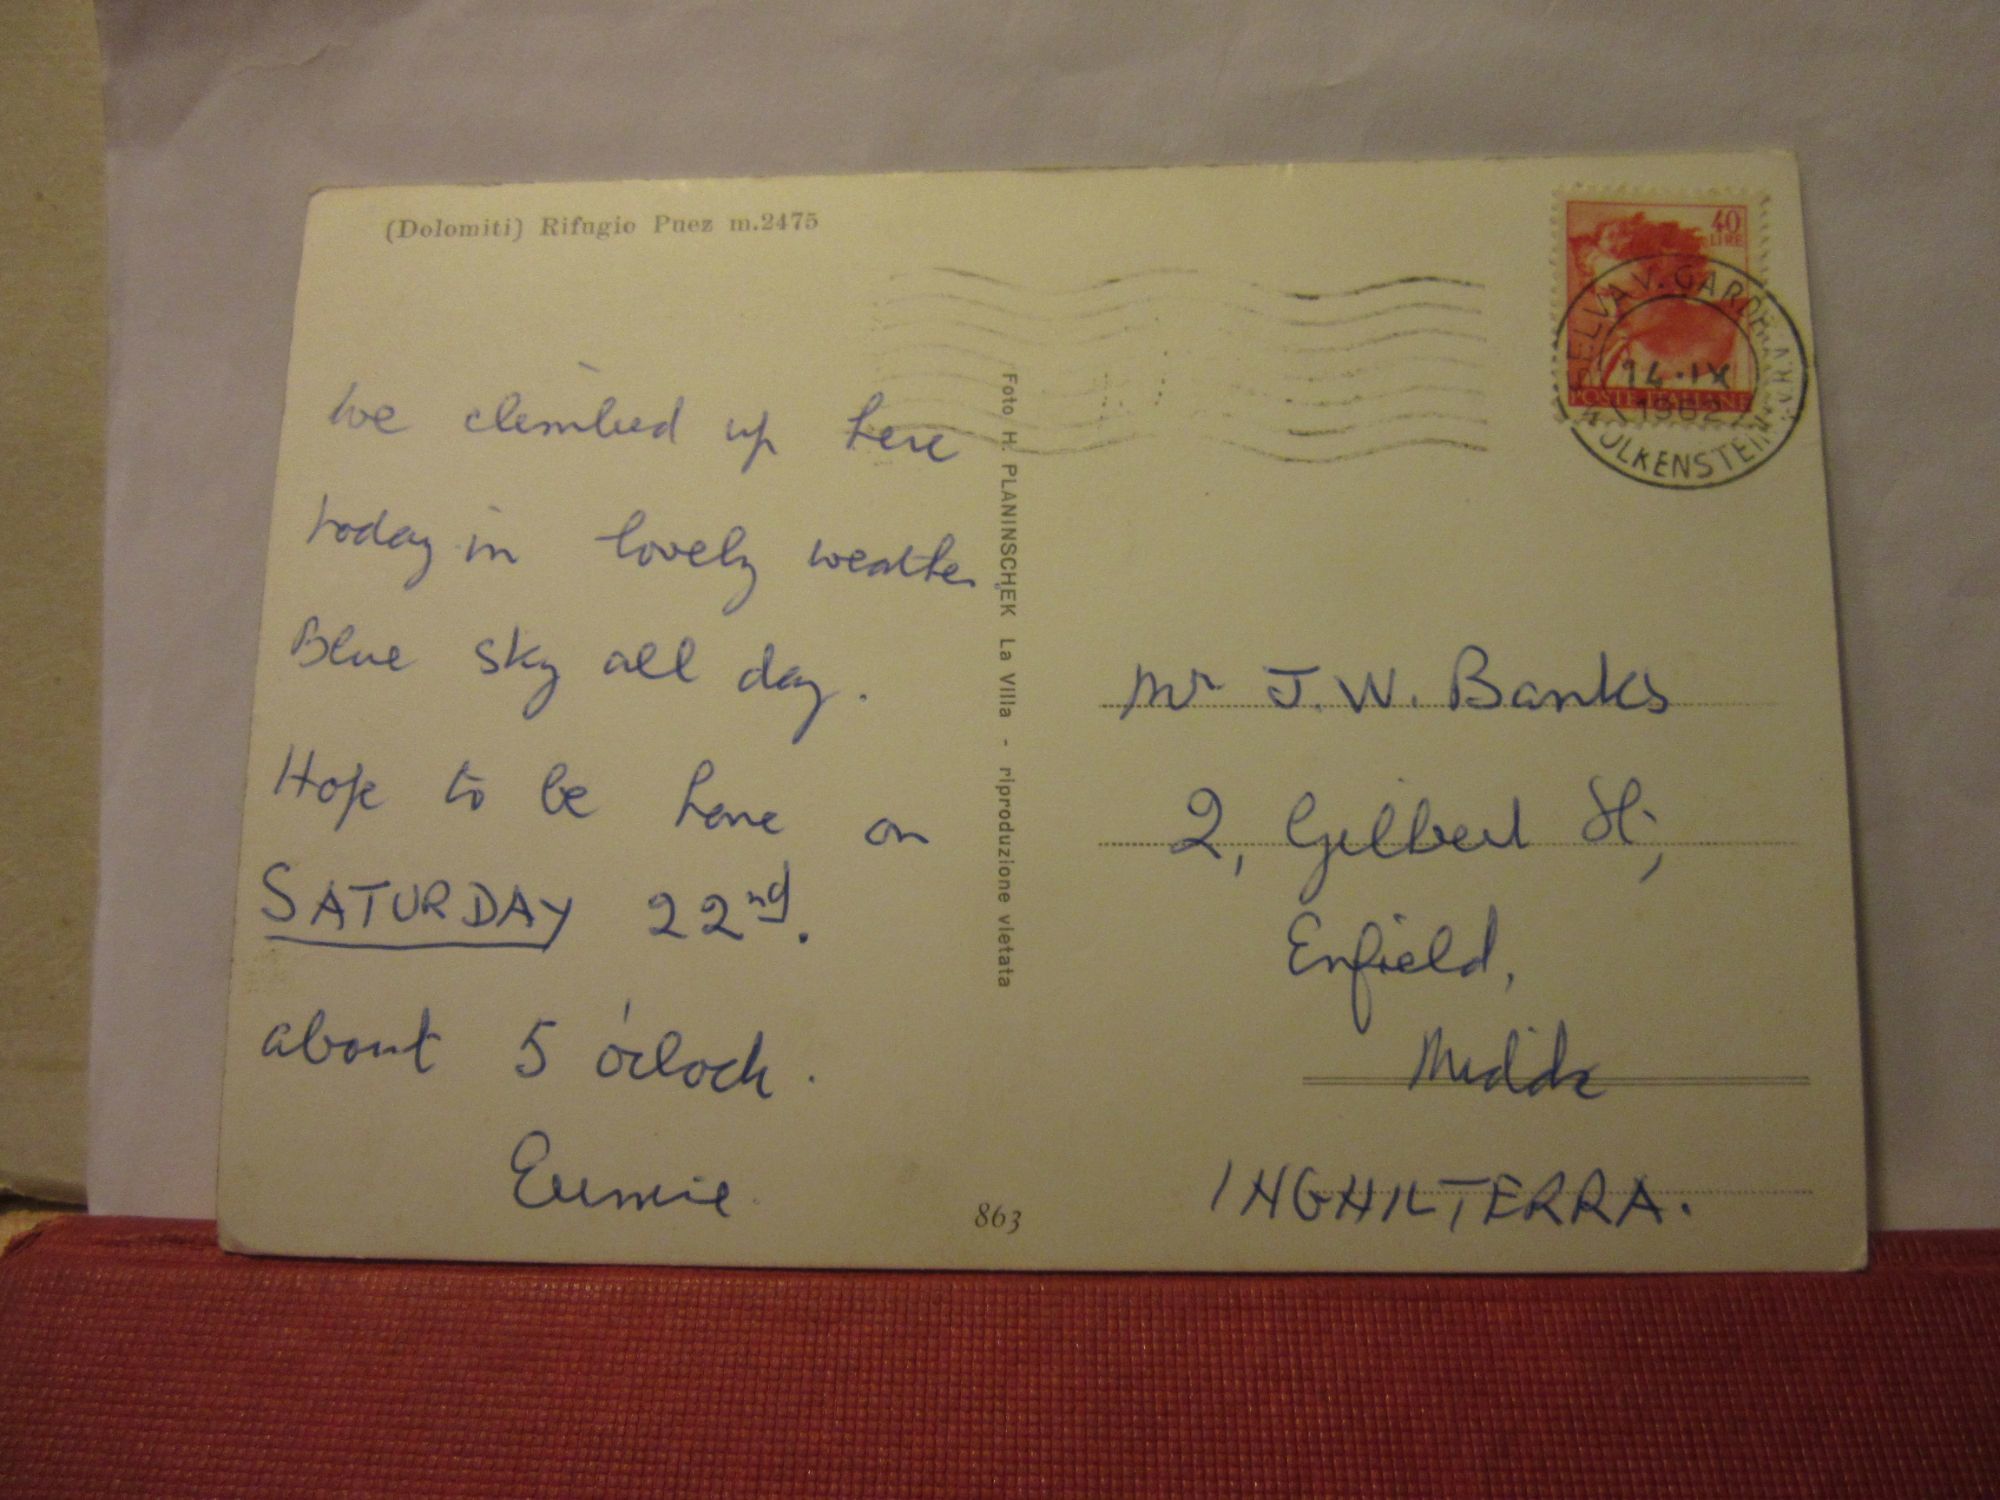 (Dolomiti) Rifugio Puez m.2475
We climbed up here
today in lovely weather
Blue sky all day.
Hope to be home on
SATURDAY 22nd.
about 5 o'clock.
Foto H. PLANINSCHEK La Villa - riproduzione vietata
863
40
LIRE
POSTE ITALIANE
SELVA V. GARDENA
14.IX
1962
WOLKENSTEIN
Mr J. W. Banks
2, Gilbert St,
Enfield,
Middx
INGHILTERRA.